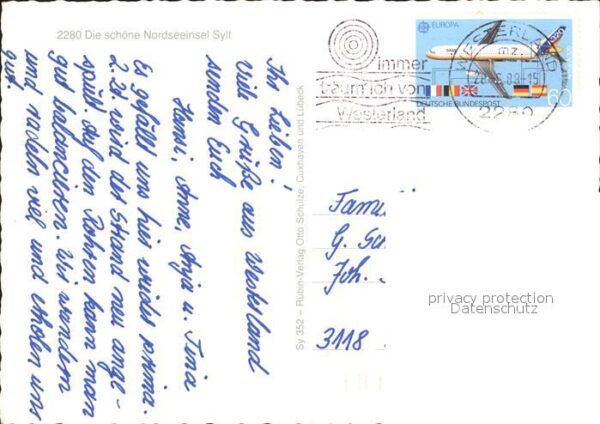 2280 Die schöne Nordseeinsel Sylt
Ihr Lieben!
Viele Grüße aus Westerland
senden Euch
Hansi, Anne, Anja u. Tina
Es gefällt uns hier wieder prima.
Z. Zt. wird der Strand neu ange-
spült. Auf den Rohren kann man
gut balancieren. Wir wandern
und radeln viel und erholen uns
gut.
Sy 352 – Rubin-Verlag Otto Schulze, Cuxhaven und Lübeck
immer
träum ich von
Westerland
EUROPA
DEUTSCHE BUNDESPOST
60
WESTERLAND
mz
2280
Famil
G. Sc
Joh.
3118
privacy protection
Datenschutz